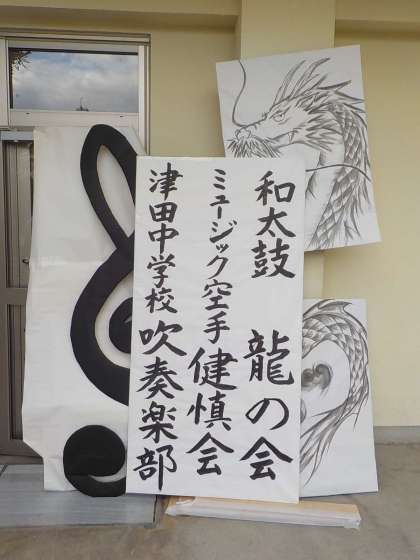 和太鼓 龍の会
ミュージック空手 健慎会
津田中学校 吹奏楽部